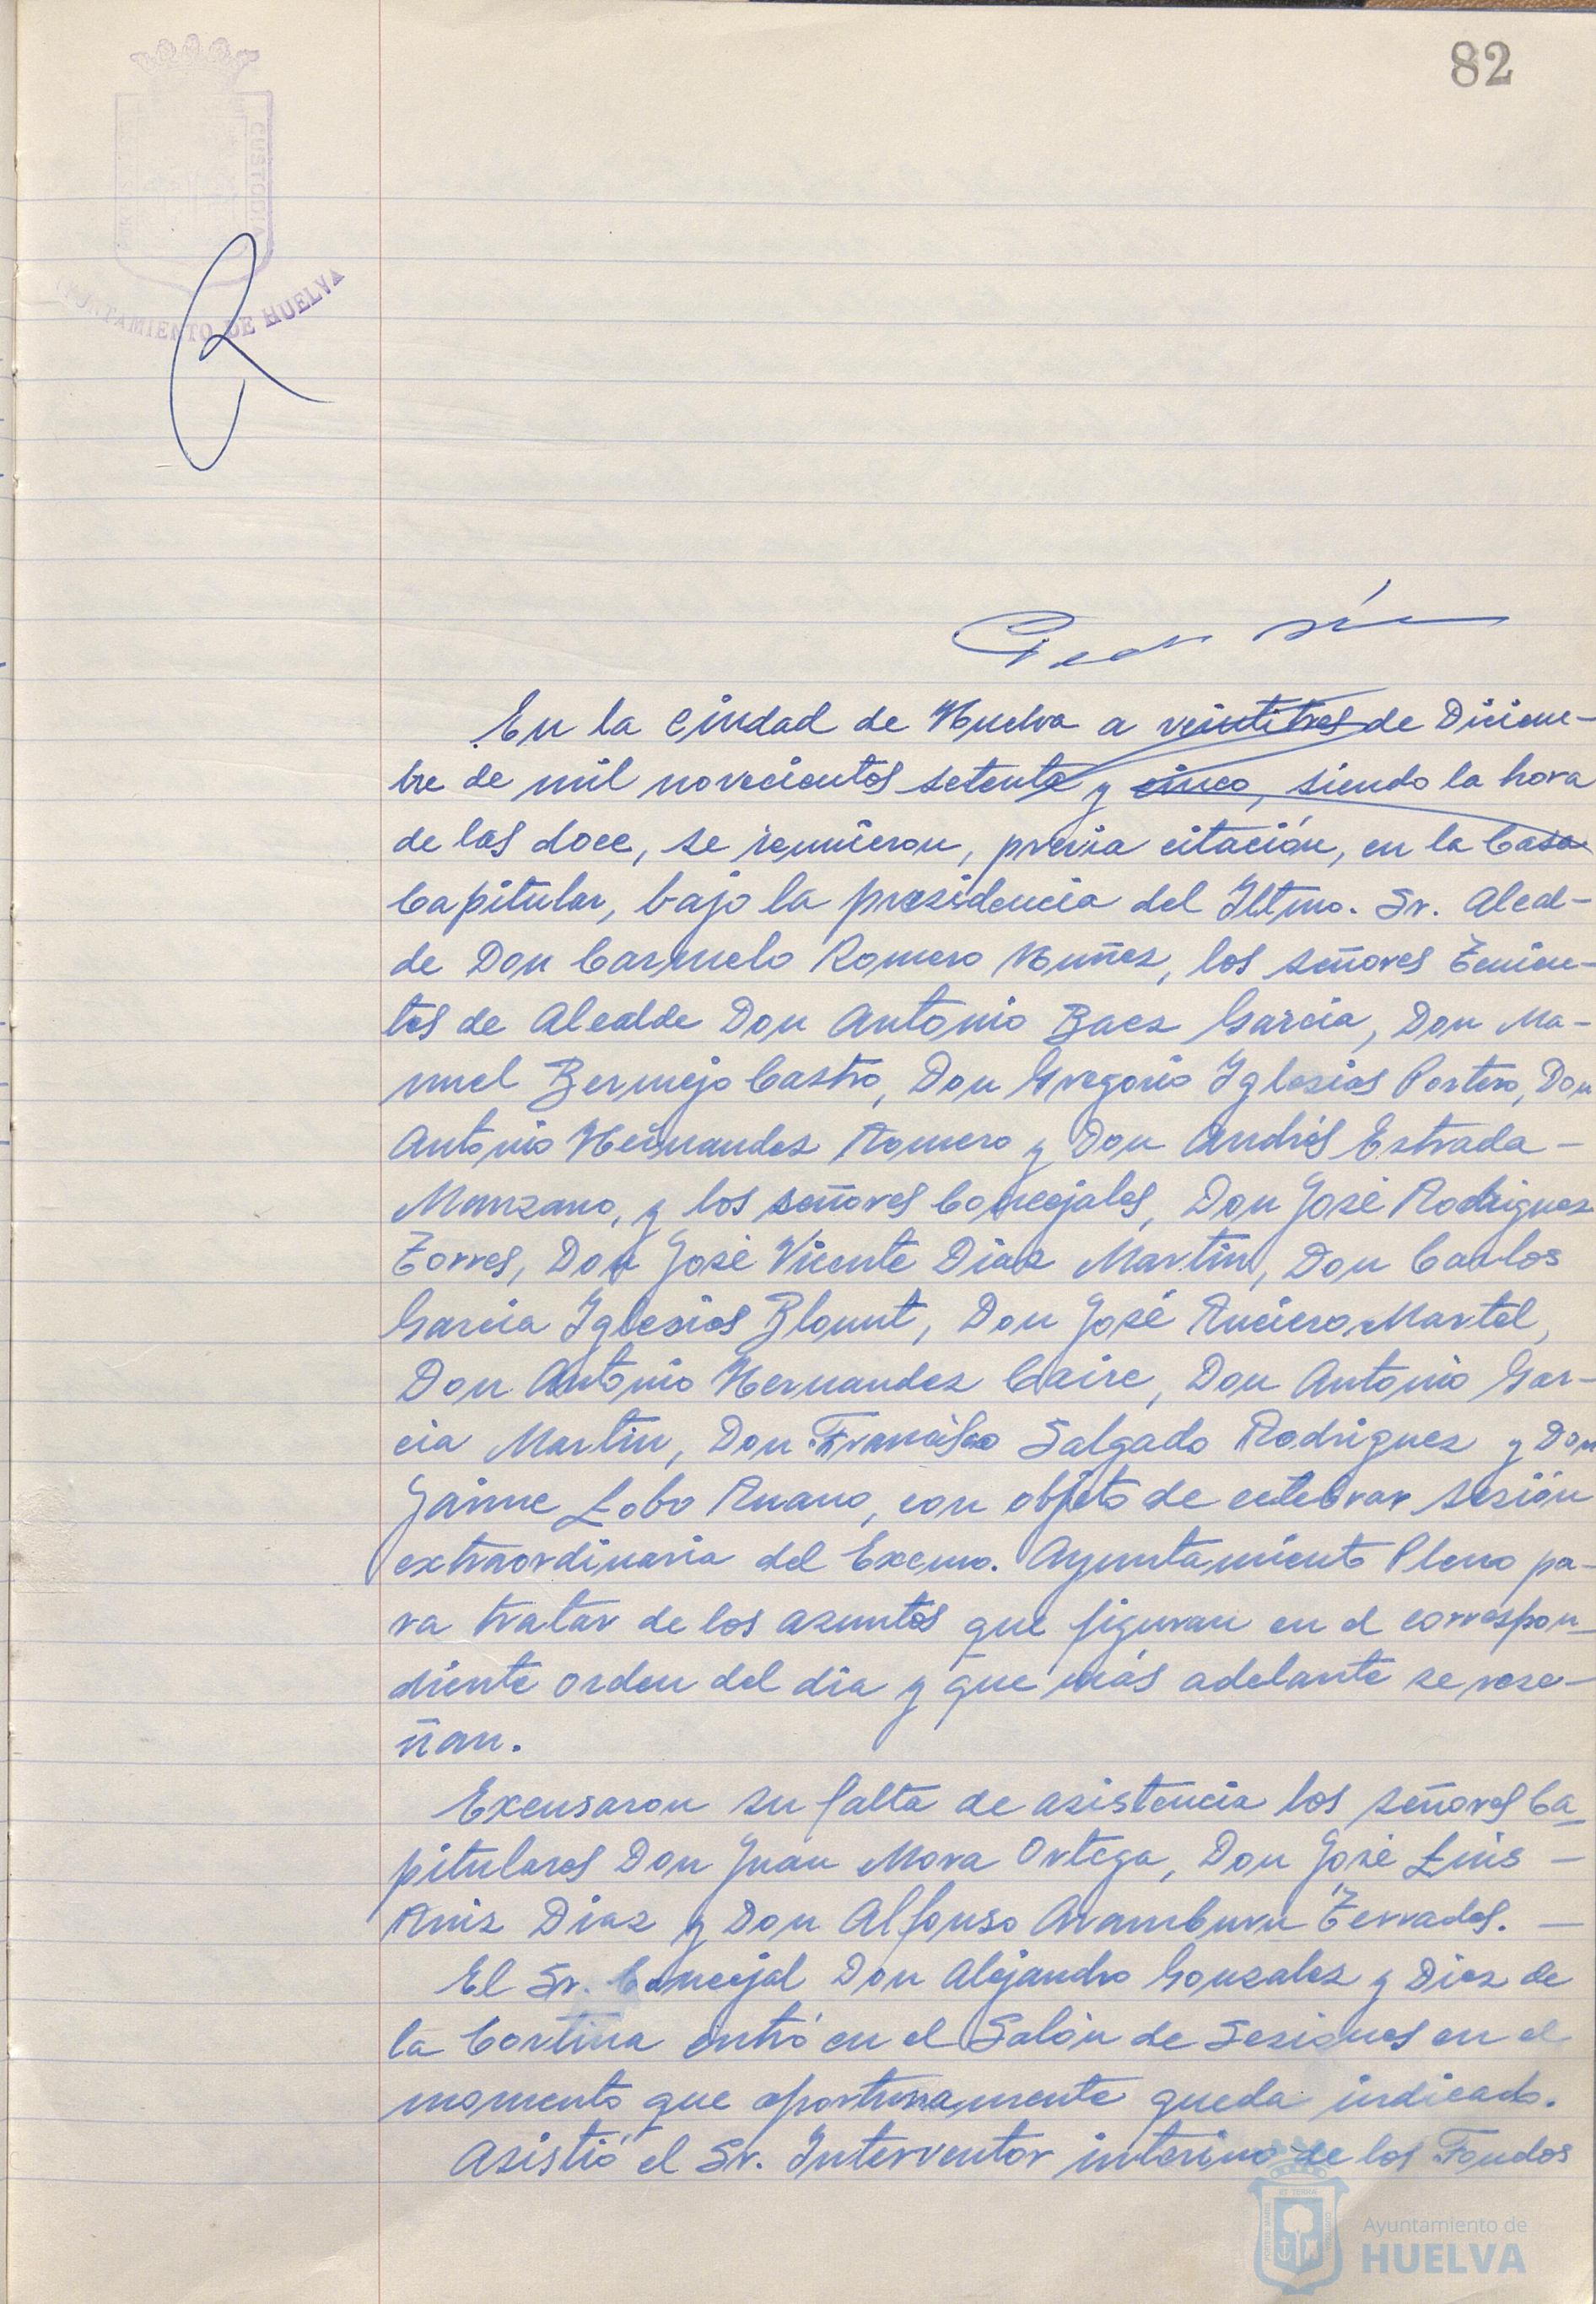 82
CUSTODIA
AYUNTAMIENTO DE HUELVA
En la Ciudad de Huelva a veintitres de Diciem-
bre de mil novecientos setenta y cinco, siendo la hora
de las doce, se reunieron, previa citación, en la Casa
Capitular, bajo la presidencia del Iltmo. Sr. Alcal-
de Don Carmelo Romero Nuñez, los señores Tenien-
tes de Alcalde Don Antonio Baez Garcia, Don Ma-
nuel Bermejo Castro, Don Gregorio Iglesias Portero, Don
Antonio Hernandez Romero y Don Andrés Estrada -
Manzano, y los señores Concejales, Don José Rodriguez
Torres, Don José Vicente Diaz Martin, Don Carlos
Garcia Iglesias Blount, Don José Ruciero Martel,
Don Antonio Hernandez Caire, Don Antonio Gar-
cia Martin, Don Francisco Salgado Rodriguez y Don
Jaime Lobo Ruano, con objeto de celebrar sesión
extraordinaria del Excmo. Ayuntamiento Pleno pa-
ra tratar de los asuntos que figuran en el correspon-
diente orden del dia y que más adelante se rese-
ñan.
Excusaron su falta de asistencia los señores Ca-
pitulares Don Juan Mora Ortega, Don José Luis -
Ruiz Diaz y Don Alfonso Aramburu Terrades. -
El Sr. Concejal Don Alejandro Gonzalez y Diez de
la Cortina entró en el Salón de Sesiones en el
momento que oportunamente queda indicado.
Asistió el Sr. Interventor interino de los Fondos
Ayuntamiento de
HUELVA